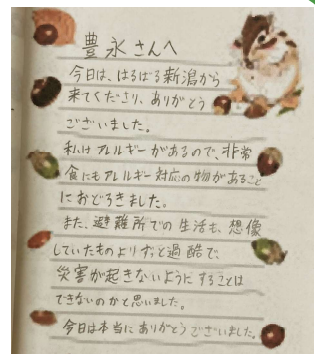 豊永さんへ
今日は、はるばる新潟から
来てくださり、ありがとう
ございました。
私はアレルギーがあるので、非常
食にもアレルギー対応の物があること
におどろきました。
また、避難所での生活も、想像
していたものよりずっと過酷で、
災害が起きないようにすることは
できないのかと思いました。
今日は本当にありがとうございました。